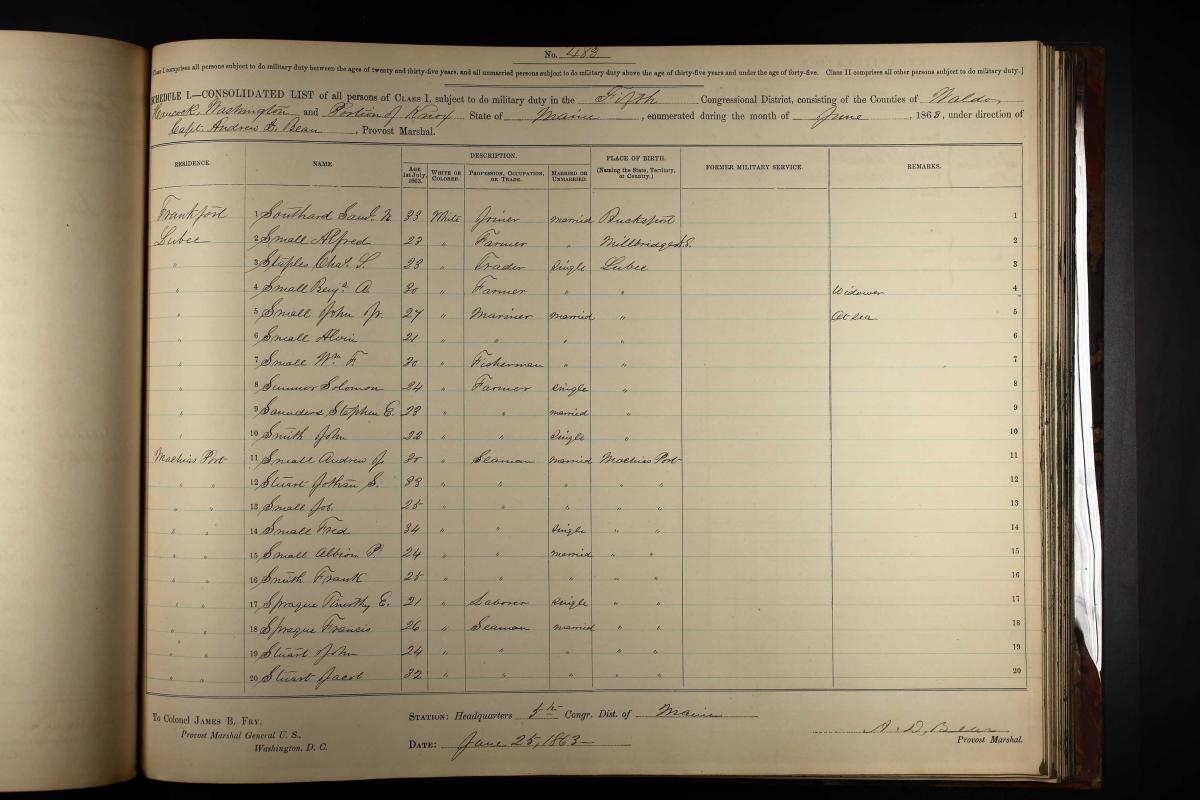 No. 483
Class I comprises all persons subject to do military duty between the ages of twenty and thirty-five years, and all unmarried persons subject to do military duty above the age of thirty-five years and under the age of forty-five. Class II comprises all other persons subject to do military duty.]
SCHEDULE I.—CONSOLIDATED LIST of all persons of CLASS I, subject to do military duty in the Fifth Congressional District, consisting of the Counties of Waldo,
Hancock, Washington and Portion of Knox State of Maine, enumerated during the month of June, 1863, under direction of
Capt. Andrew D. Bean, Provost Marshal.
RESIDENCE. NAME. DESCRIPTION. PLACE OF BIRTH. (Naming the State, Territory, or Country.) FORMER MILITARY SERVICE. REMARKS.
AGE 1st July, 1863. WHITE OR COLORED. PROFESSION, OCCUPATION, OR TRADE. MARRIED OR UNMARRIED.
Frankfort 1 Southard Saml. N 33 White Joiner married Bucksport 1
Lubec 2 Small Alfred 23 " Farmer " Millbridge 2
" 3 Staples Chas. S. 23 " Trader Single Lubec 3
" 4 Small Benja. A. 30 " Farmer " " Widower 4
" 5 Small John Jr. 27 " Mariner married " At sea 5
" 6 Small Alvin 21 " " " " 6
" 7 Small Wm F. 30 " Fisherman " " 7
" 8 Sumner Solomon 24 " Farmer single " 8
" 9 Saunders, Stephen E. 23 " " married " 9
" 10 Smith John 22 " " Single " 10
Machias Port 11 Small Andrew J. 30 " Seaman married Machias Port 11
" " 12 Stuart Jothan S. 33 " " " " " 12
" " 13 Small Job. 25 " " " " " 13
" " 14 Small Fred 34 " " single " " 14
" " 15 Small Albion P. 24 " " married " " 15
" " 16 Smith Frank 25 " " " " " 16
" " 17 Sprague Timothy E. 21 " Laborer single " " 17
" " 18 Sprague Francis 26 " Seaman married " " 18
" " 19 Stuart John 24 " " " " " 19
" " 20 Stuart Jacob 32 " " " " " 20
To Colonel JAMES B. FRY,
Provost Marshal General U. S.,
Washington, D. C.
STATION: Headquarters 5th Congr. Dist. of Maine
DATE: June 25, 1863—
A. D. Bean
Provost Marshal.